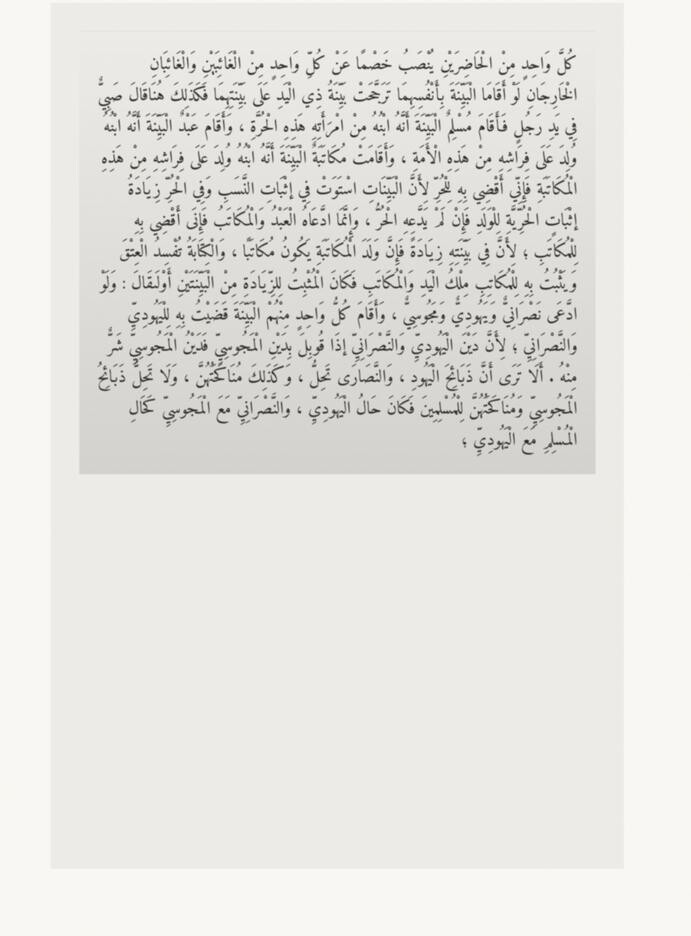 كُلَّ وَاحِدٍ مِنْ الْحَاضِرَيْنِ يُنْصَبُ خَصْمًا عَنْ كُلِّ وَاحِدٍ مِنْ الْغَائِبَيْنِ وَالْغَائِبَانِ
الْخَارِجَانِ لَوْ أَقَامَا الْبَيِّنَةَ بِأَنْفُسِهِمَا تَرَجَّحَتْ بَيِّنَةُ ذِي الْيَدِ عَلَى بَيِّنَتِهِمَا فَكَذَلِكَ هُنَاقَالَ صَبِيٌّ
فِي يَدِ رَجُلٍ فَأَقَامَ مُسْلِمٌ الْبَيِّنَةَ أَنَّهُ ابْنُهُ مِنْ امْرَأَتِهِ هَذِهِ الْحُرَّةِ ، وَأَقَامَ عَبْدٌ الْبَيِّنَةَ أَنَّهُ ابْنُهُ
وُلِدَ عَلَى فِرَاشِهِ مِنْ هَذِهِ الْأَمَةِ ، وَأَقَامَتْ مُكَاتَبَةٌ الْبَيِّنَةَ أَنَّهُ ابْنُهُ وُلِدَ عَلَى فِرَاشِهِ مِنْ هَذِهِ
الْمُكَاتَبَةِ فَإِنِّي أَقْضِي بِهِ لِلْحُرِّ لِأَنَّ الْبَيِّنَاتِ اسْتَوَتْ فِي إثْبَاتِ النَّسَبِ وَفِي الْحُرِّ زِيَادَةُ
إثْبَاتِ الْحُرِّيَّةِ لِلْوَلَدِ فَإِنْ لَمْ يَدَّعِهِ الْحُرُّ ، وَإِنَّمَا ادَّعَاهُ الْعَبْدُ وَالْمُكَاتَبُ فَإِنِّي أَقْضِي بِهِ
لِلْمُكَاتَبِ ؛ لِأَنَّ فِي بَيِّنَتِهِ زِيَادَةً فَإِنَّ وَلَدَ الْمُكَاتَبَةِ يَكُونُ مُكَاتَبًا ، وَالْكِتَابَةُ تُفْسِدُ الْعِتْقَ
وَيَثْبُتُ بِهِ لِلْمُكَاتَبِ مِلْكُ الْيَدِ وَالْمُكَاتَبِ فَكَانَ الْمُثْبِتُ لِلزِّيَادَةِ مِنْ الْبَيِّنَتَيْنِ أَوْلَىقَالَ : وَلَوْ
ادَّعَى نَصْرَانِيٌّ وَيَهُودِيٌّ وَمَجُوسِيٌّ ، وَأَقَامَ كُلُّ وَاحِدٍ مِنْهُمْ الْبَيِّنَةَ قَضَيْتُ بِهِ لِلْيَهُودِيِّ
وَالنَّصْرَانِيِّ ؛ لِأَنَّ دَيْنَ الْيَهُودِيِّ وَالنَّصْرَانِيِّ إذَا قُوبِلَ بِدَيْنِ الْمَجُوسِيِّ فَدَيْنُ الْمَجُوسِيِّ شَرٌّ
مِنْهُ . أَلَا تَرَى أَنَّ ذَبَائِحَ الْيَهُودِ ، وَالنَّصَارَى تَحِلُّ ، وَكَذَلِكَ مُنَاكَحَتُهُنَّ ، وَلَا تَحِلُّ ذَبَائِحُ
الْمَجُوسِيِّ وَمُنَاكَحَتُهُنَّ لِلْمُسْلِمِينَ فَكَانَ حَالُ الْيَهُودِيِّ ، وَالنَّصْرَانِيِّ مَعَ الْمَجُوسِيِّ كَحَالِ
الْمُسْلِمِ مَعَ الْيَهُودِيِّ ؛